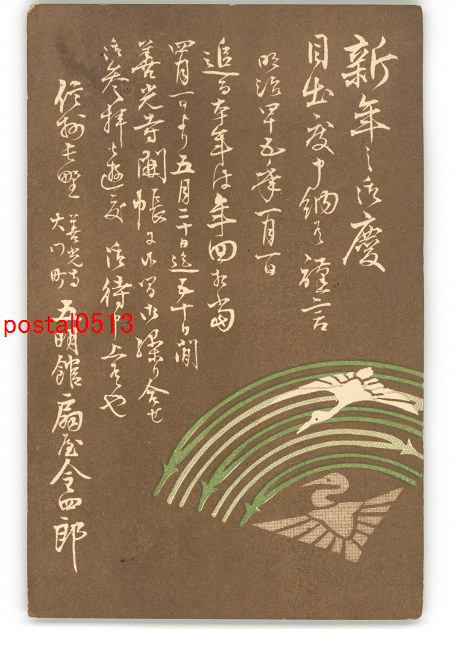 新年之御慶
目出度申納候謹言
明治四十五年一月一日
追而本年は年回相当
四月一日より五月二十日迄五十日間
善光寺開帳に付御繰り合せ
御参拝被遊度御待申上候也
信州長野 善光寺大門町 五明館 扇屋金四郎
postal0513